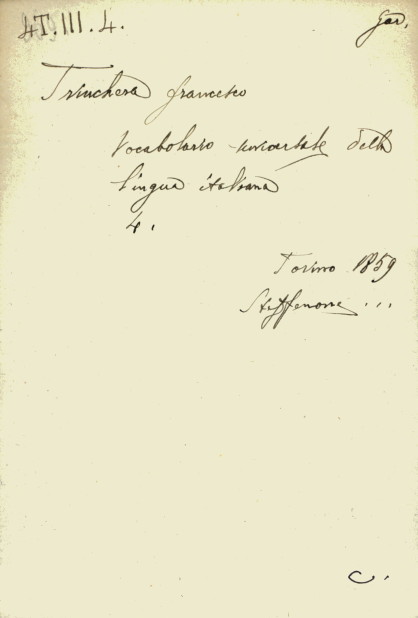 4T.III.4.
Gar.
Trinchera francesco
Vocabolario universale della
lingua italiana
4.
Torino 1859
Steffenone ...
C.